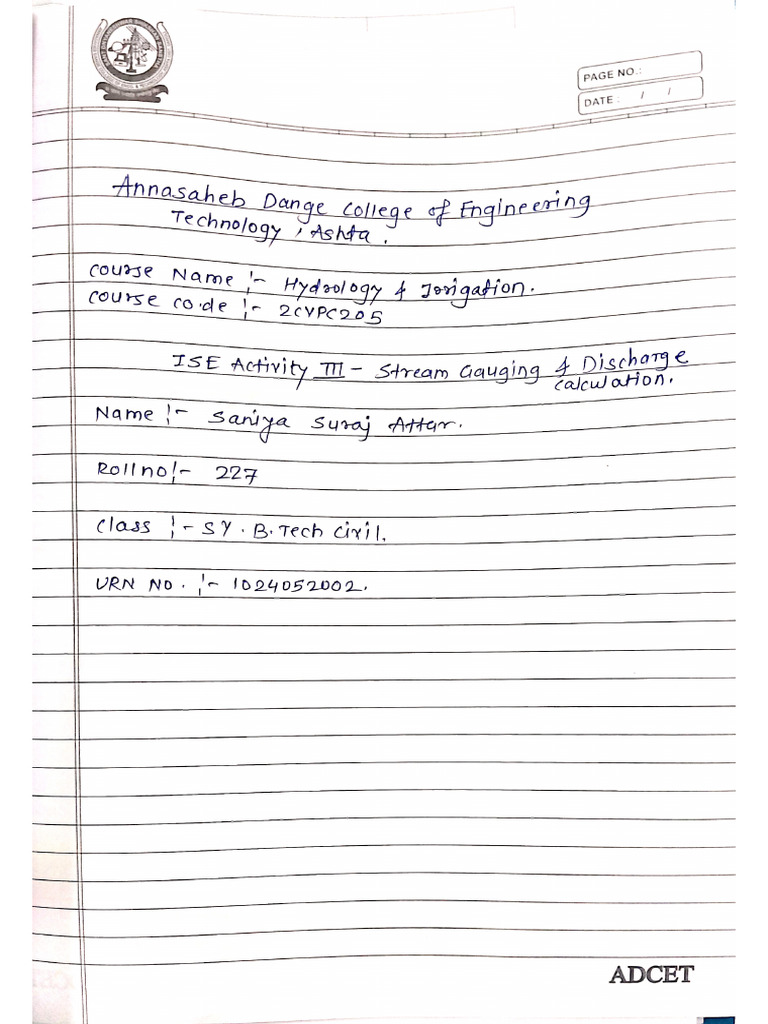 PAGE NO.:
DATE : / /
Annasaheb Dange College of Engineering
Technology, Ashta.
Course Name :- Hydrology & Irrigation.
Course code :- 2CVPC205
ISE Activity III - Stream Gauging & Discharge
calculation.
Name :- Saniya Suraj Attar.
Roll no :- 227
Class :- SY. B.Tech Civil.
URN NO. :- 1024052002.
ADCET